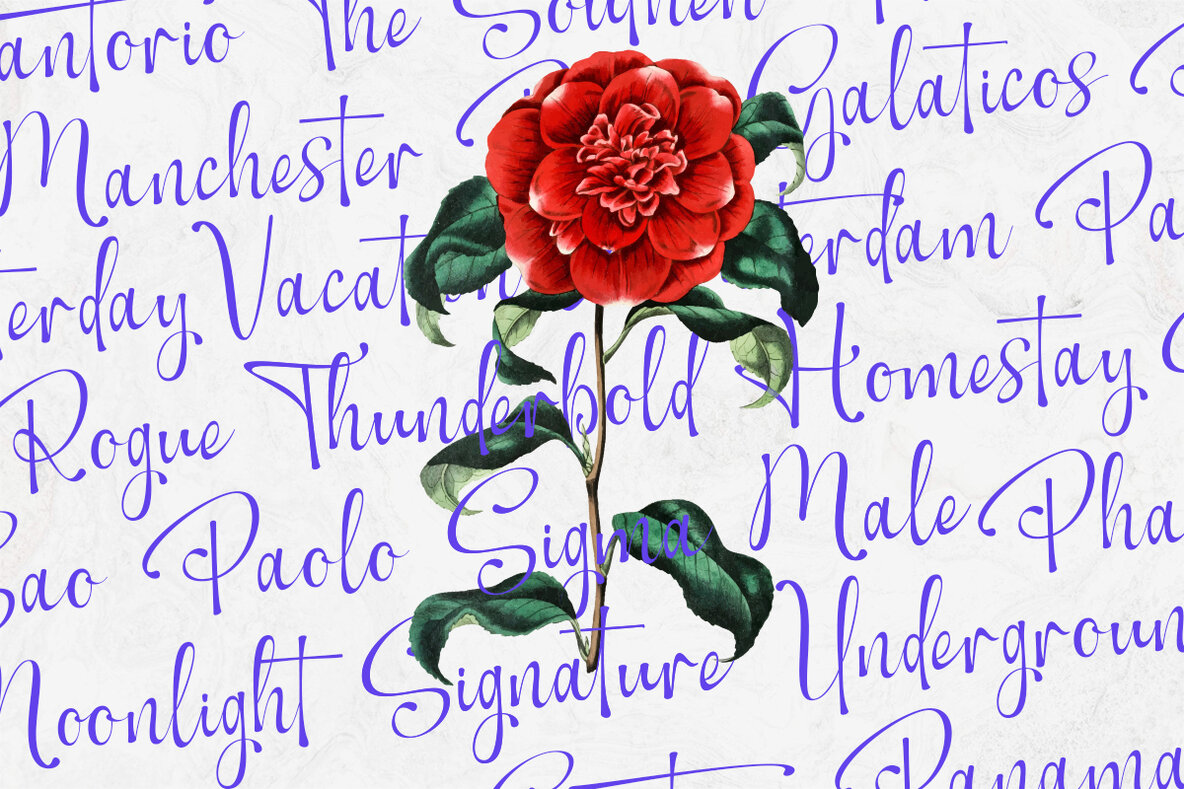 antorio The
Manchester Galaticos
terday Vacat erdam Pa
Rogue Thunderbold Homestay
Sao Paolo Sigma Male Pha
Moonlight Signature Undergroun
Panama